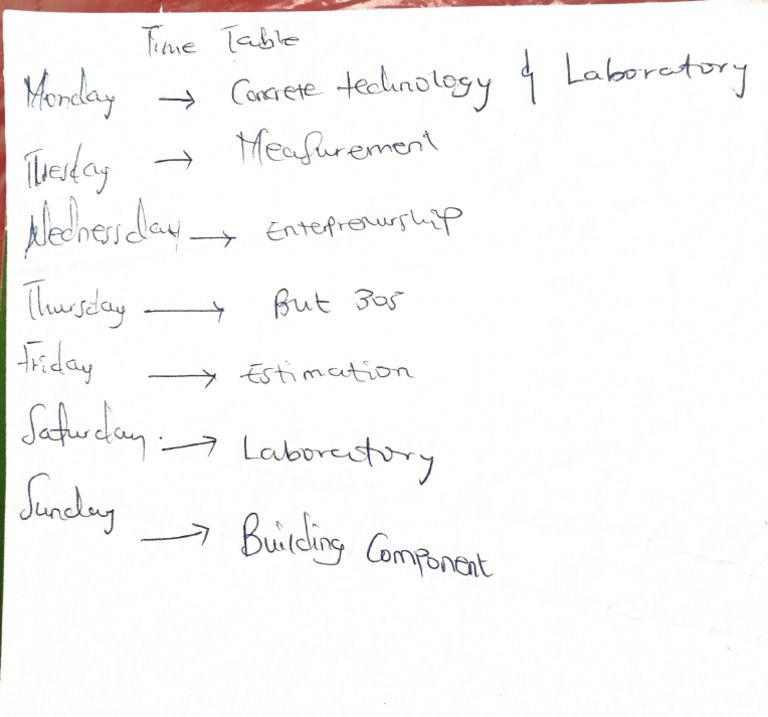 Time Table
Monday → Concrete technology & Laboratory
Tuesday → Measurement
Wednessday → Enteprenurship
Thursday → But 305
Friday → Estimation
Saturday. → Laboratory
Sunday → Building Component